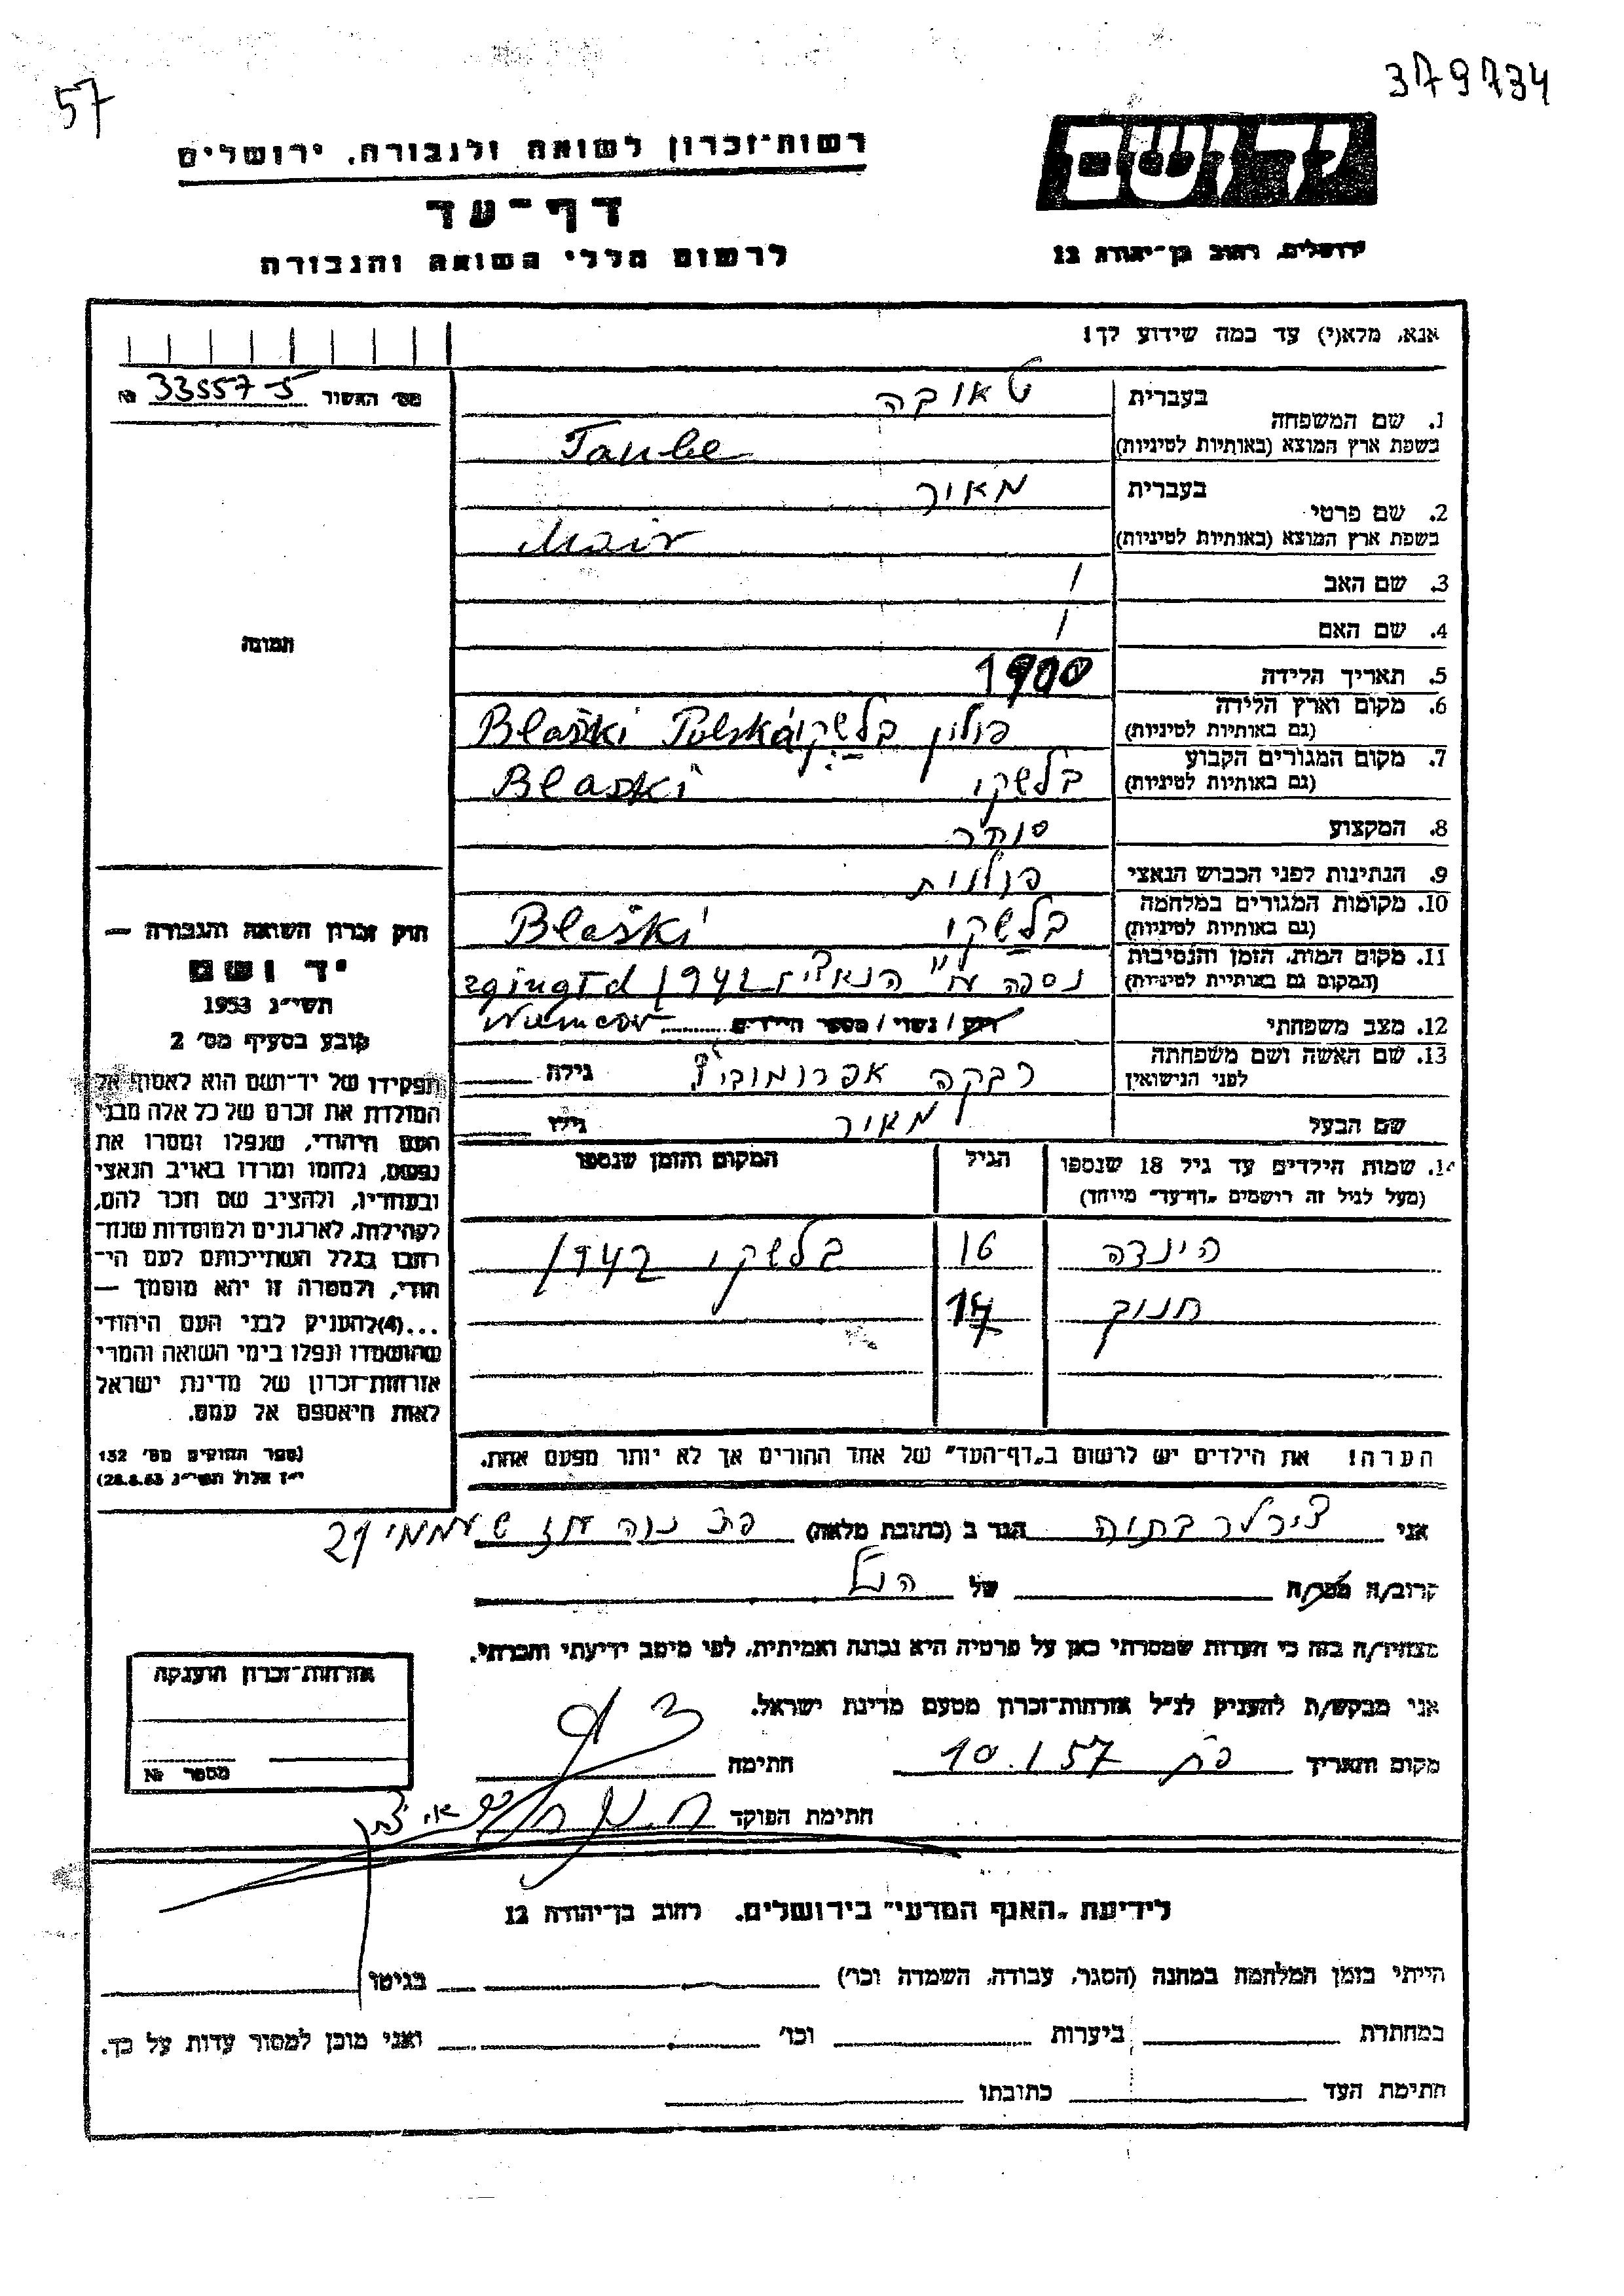 57
379734
יד ושם
רשות-זכרון לשואה ולגבורה, ירושלים
דף-עד
לרשום חללי השואה והגבורה
ירושלים, רחוב בן-יהודה 12
אנא, מלא(י) עד כמה שידוע לך!
מס' האשור 33557-5 №
1. שם המשפחה
בעברית טאובה
בשפת ארץ המוצא (באותיות לטיניות) Taube
2. שם פרטי
בעברית מאיר
בשפת ארץ המוצא (באותיות לטיניות) Mair
3. שם האב /
4. שם האם /
5. תאריך הלידה 1900
6. מקום וארץ הלידה (גם באותיות לטיניות) פולין בלשקי Blaški Polská
7. מקום המגורים הקבוע (גם באותיות לטיניות) בלשקי Blaski
8. המקצוע סוחר
9. הנתינות לפני הכבוש הנאצי פולנית
10. מקומות המגורים במלחמה (גם באותיות לטיניות) בלשקי Blaški
11. מקום המות, הזמן והנסיבות (המקום גם באותיות לטיניות) נספה ע"י הנאצים 1942
12. מצב משפחתי רווק / נשוי / מספר הילדים
13. שם האשה ושם משפחתה לפני הנישואין רבקה אפרומוביץ גילה
שם הבעל מאיר גילו
14. שמות הילדים עד גיל 18 שנספו (מעל לגיל זה רושמים "דף-עד" מיוחד) הגיל המקום והזמן שנספו
הינדה 16 בלשקי 1942
חנוך 14
הערה! את הילדים יש לרשום ב"דף-העד" של אחד ההורים אך לא יותר מפעם אחת.
תמונה
חוק זכרון השואה והגבורה —
יד ושם
תשי"ג 1953
קובע בסעיף מס' 2
תפקידו של יד-ושם הוא לאסוף אל
המולדת את זכרם של כל אלה מבני
העם היהודי, שנפלו ומסרו את
נפשם, נלחמו ומרדו באויב הנאצי
ובעוזריו, ולהציב שם וזכר להם,
לקהילות, לארגונים ולמוסדות שנח-
רבו בגלל השתייכותם לעם הי-
הודי, ולמטרה זו יהא מוסמך —
...(4) להעניק לבני העם היהודי
שהושמדו ונפלו בימי השואה והמרי
אזרחות-זכרון של מדינת ישראל
לאות היאספם אל עמם.
(ספר החוקים מס' 132
י"ז אלול תשי"ג 28.8.53)
אני הגר ב (כתובת מלאה) פת נוה עוז 21
קרוב/ה מכר/ה של הנ"ל
מצהיר/ה בזה כי העדות שמסרתי כאן על פרטיה היא נכונה ואמיתית, לפי מיטב ידיעתי והכרתי.
אני מבקש/ת להעניק לנ"ל אזרחות-זכרון מטעם מדינת ישראל.
מקום ותאריך פת 10.1.57 חתימה
חתימת הפוקד
אזרחות-זכרון הוענקה
מספר №
לידיעת "האגף המדעי" בירושלים, רחוב בן-יהודה 12
הייתי בזמן המלחמה במחנה (הסגר, עבודה, השמדה וכו') בגיטו
במחתרת ביערות וכו' ואני מוכן למסור עדות על כך.
חתימת העד כתובתו